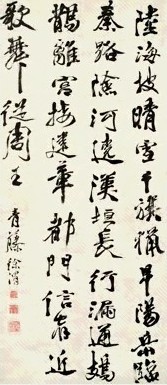 陸海披晴雪千旗獵早陽岳臨
秦路險河遶漢垣長行漏通鳷
鵲離宮接建章都門信宿近
歌舞從周王 青藤徐渭